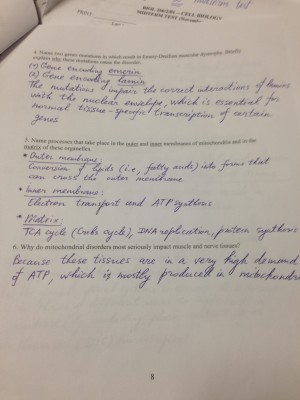 PRINT:
BIOM 200/2301 - CELL BIOLOGY
MIDTERM TEST
4. Name two genes mutations in which result in Emery-Dreifuss muscular dystrophy. Briefly
explain why these mutations cause the disorder.
(1) Gene encoding emerin
(2) Gene encoding lamin
The mutations impair the correct interactions of lamins
with the nuclear envelope, which is essential for
normal tissue-specific transcription of certain
genes
5. Name processes that take place in the outer and inner membranes of mitochondria and in the
matrix of these organelles.
* Outer membrane:
Conversion of lipids (i.e., fatty acids) into forms that
can cross the outer membrane
* Inner membrane:
Electron transport and ATP synthesis
* Matrix:
TCA cycle (Crebs cycle), DNA replication, protein synthesis
6. Why do mitochondrial disorders most seriously impact muscle and nerve tissues?
Because these tissues are in a very high demand
of ATP, which is mostly produced in mitochondria
8